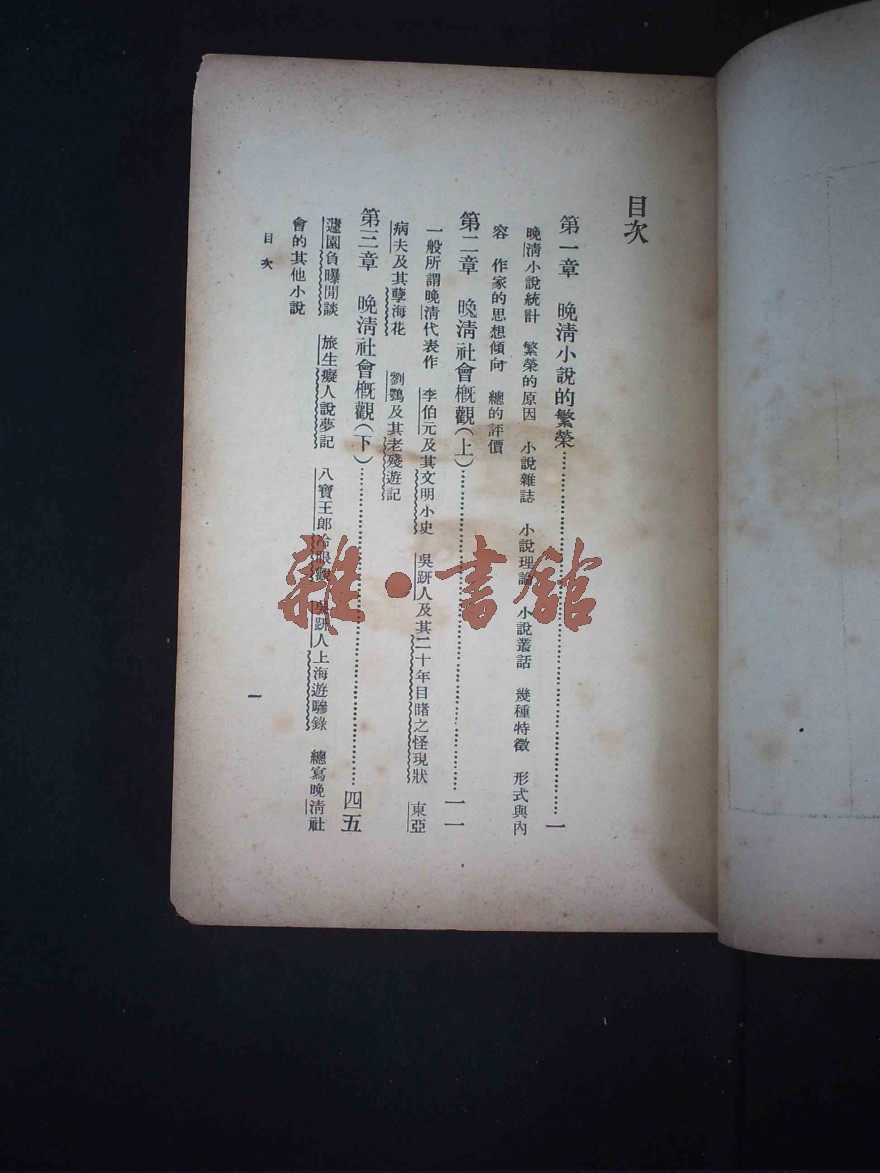 目次
第一章 晚淸小說的繁榮……………………一
晚淸小說統計 繁榮的原因 小說雜誌 小說理論 小說叢話 幾種特徵 形式與內
容 作家的思想傾向 總的評價
第二章 晚淸社會概觀(上)……………………一一
一般所謂晚淸代表作 李伯元及其文明小史 吳趼人及其二十年目睹之怪現狀 東亞
病夫及其孽海花 劉鶚及其老殘遊記
第三章 晚淸社會概觀(下)……………………四五
蘧園負曝閒談 旅生癡人說夢記 八寶王郎冷眼觀 吳趼人上海遊驂錄 總寫晚淸社
會的其他小說
目次
一
雜·書館